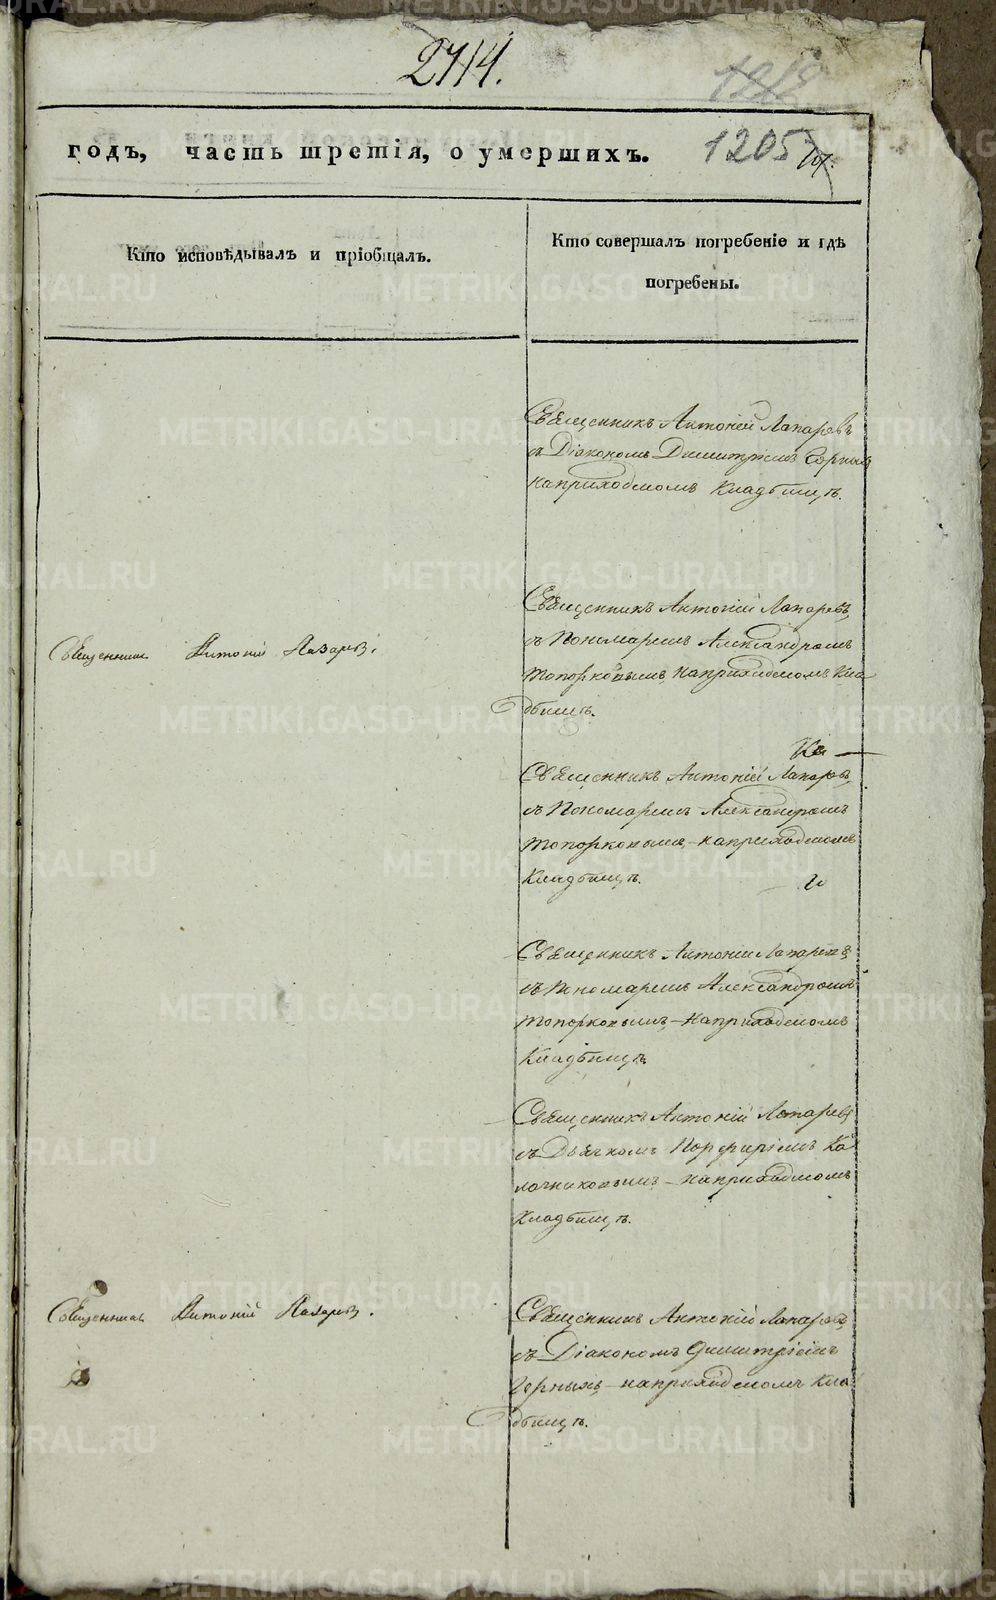 2714.
1212
годъ, часть третія, о умершихъ.
1205
Кто исповѣдывалъ и пріобщалъ.
Кто совершалъ погребеніе и гдѣ
погребены.
Священникъ Антоній Лапаревъ
съ Діакономъ Димитріемъ Черныхъ
на приходскомъ Кладбищѣ.
Священникъ Антоній Лапаревъ,
съ Пономаремъ Александромъ
Топорковымъ, на приходскомъ Кла
дбищѣ.
Священникъ Антоній Лазаревъ.
Священникъ Антоній Лапаревъ,
съ Пономаремъ Александромъ
Топорковымъ, на приходскомъ
Кладбищѣ.
Священникъ Антоній Лапаревъ
съ Пономаремъ Александромъ
Топорковымъ, на приходскомъ
Кладбищѣ
Священникъ Антоній Лапаревъ
съ Дьячкомъ Порфиріемъ Ка
лачниковымъ, на приходскомъ
Кладбищѣ.
Священникъ Антоній Лазаревъ.
Священникъ Антоній Лапаревъ,
съ Діакономъ Димитріемъ
Черныхъ, на приходскомъ Кла
дбищѣ.
METRIKI.GASO-URAL.RU